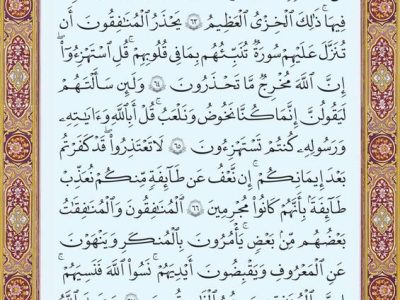 فِيهَا ۚ ذَٰلِكَ الْخِزْىُ الْعَظِيمُ ٦٣ يَحْذَرُ الْمُنَٰفِقُونَ أَن
تُنَزَّلَ عَلَيْهِمْ سُورَةٌ تُنَبِّئُهُم بِمَا فِى قُلُوبِهِمْ ۚ قُلِ اسْتَهْزِءُوٓا۟
إِنَّ اللَّهَ مُخْرِجٌ مَّا تَحْذَرُونَ ٦٤ وَلَئِن سَأَلْتَهُمْ
لَيَقُولُنَّ إِنَّمَا كُنَّا نَخُوضُ وَنَلْعَبُ ۚ قُلْ أَبِاللَّهِ وَءَايَٰتِهِۦ
وَرَسُولِهِۦ كُنتُمْ تَسْتَهْزِءُونَ ٦٥ لَا تَعْتَذِرُوا۟ قَدْ كَفَرْتُم
بَعْدَ إِيمَٰنِكُمْ ۚ إِن نَّعْفُ عَن طَآئِفَةٍ مِّنكُمْ نُعَذِّبْ
طَآئِفَةًۢ بِأَنَّهُمْ كَانُوا۟ مُجْرِمِينَ ٦٦ الْمُنَٰفِقُونَ وَالْمُنَٰفِقَٰتُ
بَعْضُهُم مِّنۢ بَعْضٍ ۚ يَأْمُرُونَ بِالْمُنكَرِ وَيَنْهَوْنَ
عَنِ الْمَعْرُوفِ وَيَقْبِضُونَ أَيْدِيَهُمْ ۚ نَسُوا۟ اللَّهَ فَنَسِيَهُمْ ۗ